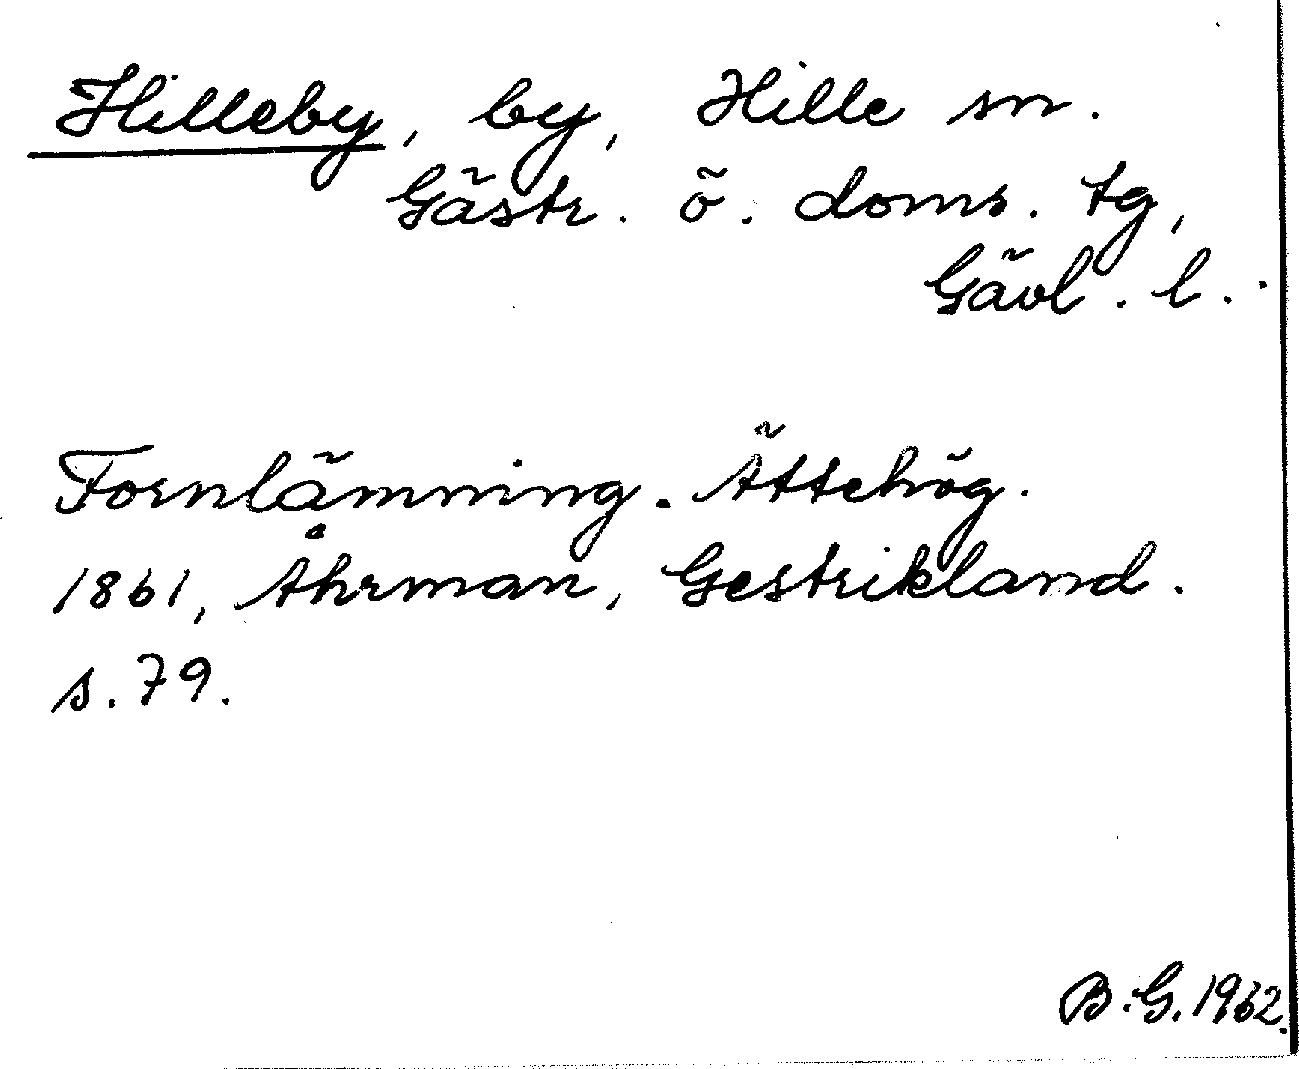 Hilleby, by, Hille sn.
Gästr. ö. doms. tg,
Gävl. l.
Fornlämning. Ättehög.
1861, Åhrman, Gestrikland.
s. 79.
B.G. 1962.